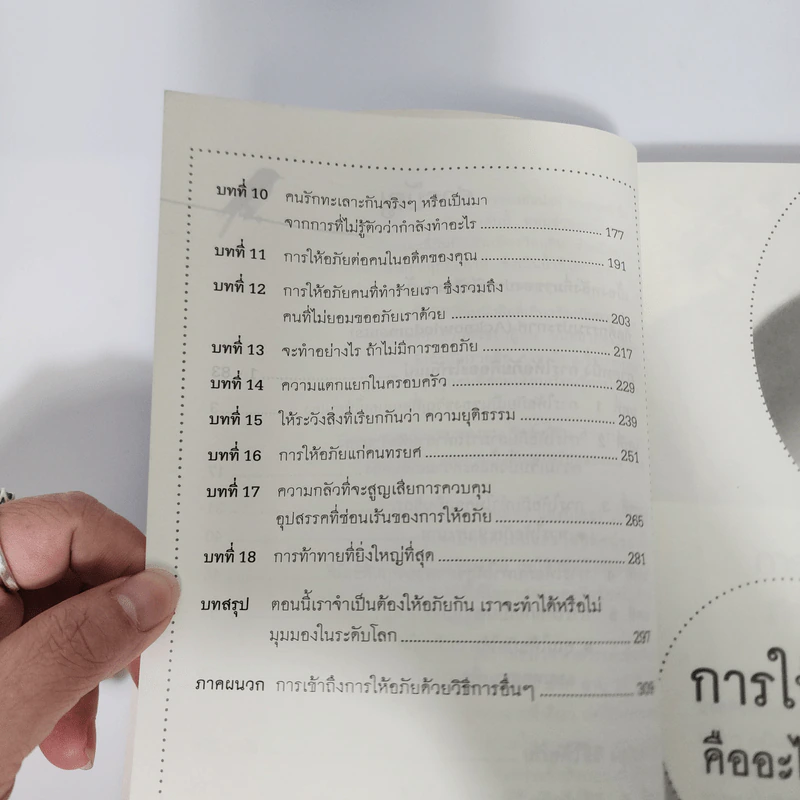 บทที่ 10 คนรักทะเลาะกันจริงๆ หรือเป็นมา
จากการที่ไม่รู้ตัวว่ากำลังทำอะไร 177
บทที่ 11 การให้อภัยต่อคนในอดีตของคุณ 191
บทที่ 12 การให้อภัยคนที่ทำร้ายเรา ซึ่งรวมถึง
คนที่ไม่ยอมขออภัยเราด้วย 203
บทที่ 13 จะทำอย่างไร ถ้าไม่มีการขออภัย 217
บทที่ 14 ความแตกแยกในครอบครัว 229
บทที่ 15 ให้ระวังสิ่งที่เรียกกันว่า ความยุติธรรม 239
บทที่ 16 การให้อภัยแก่คนทรยศ 251
บทที่ 17 ความกลัวที่จะสูญเสียการควบคุม
อุปสรรคที่ซ่อนเร้นของการให้อภัย 265
บทที่ 18 การท้าทายที่ยิ่งใหญ่ที่สุด 281
บทสรุป ตอนนี้เราจำเป็นต้องให้อภัยกัน เราจะทำได้หรือไม่
มุมมองในระดับโลก 297
ภาคผนวก การเข้าถึงการให้อภัยด้วยวิธีการอื่นๆ 309
การให้
คืออะไ